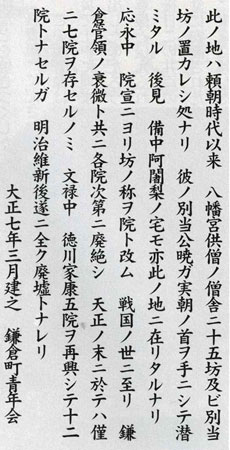 此ノ地ハ頼朝時代以来　八幡宮供僧ノ僧舎二十五坊及ビ別当
坊ノ置カレシ処ナリ　彼ノ別当公暁ガ実朝ノ首ヲ手ニシテ潜
ミタル　後見　備中阿闍梨ノ宅モ亦此ノ地ニ在リタルナリ
応永中　院宣ニヨリ坊ノ称ヲ院ト改ム　戦国ノ世ニ至リ　鎌
倉管領ノ衰微ト共ニ各院次第ニ廃絶シ　天正ノ末ニ於テハ僅
ニ七院ヲ存セルノミ　文禄中　徳川家康五院ヲ再興シテ十二
院トナセルガ　明治維新後遂ニ全ク廃墟トナレリ
大正七年三月建之　鎌倉町青年会